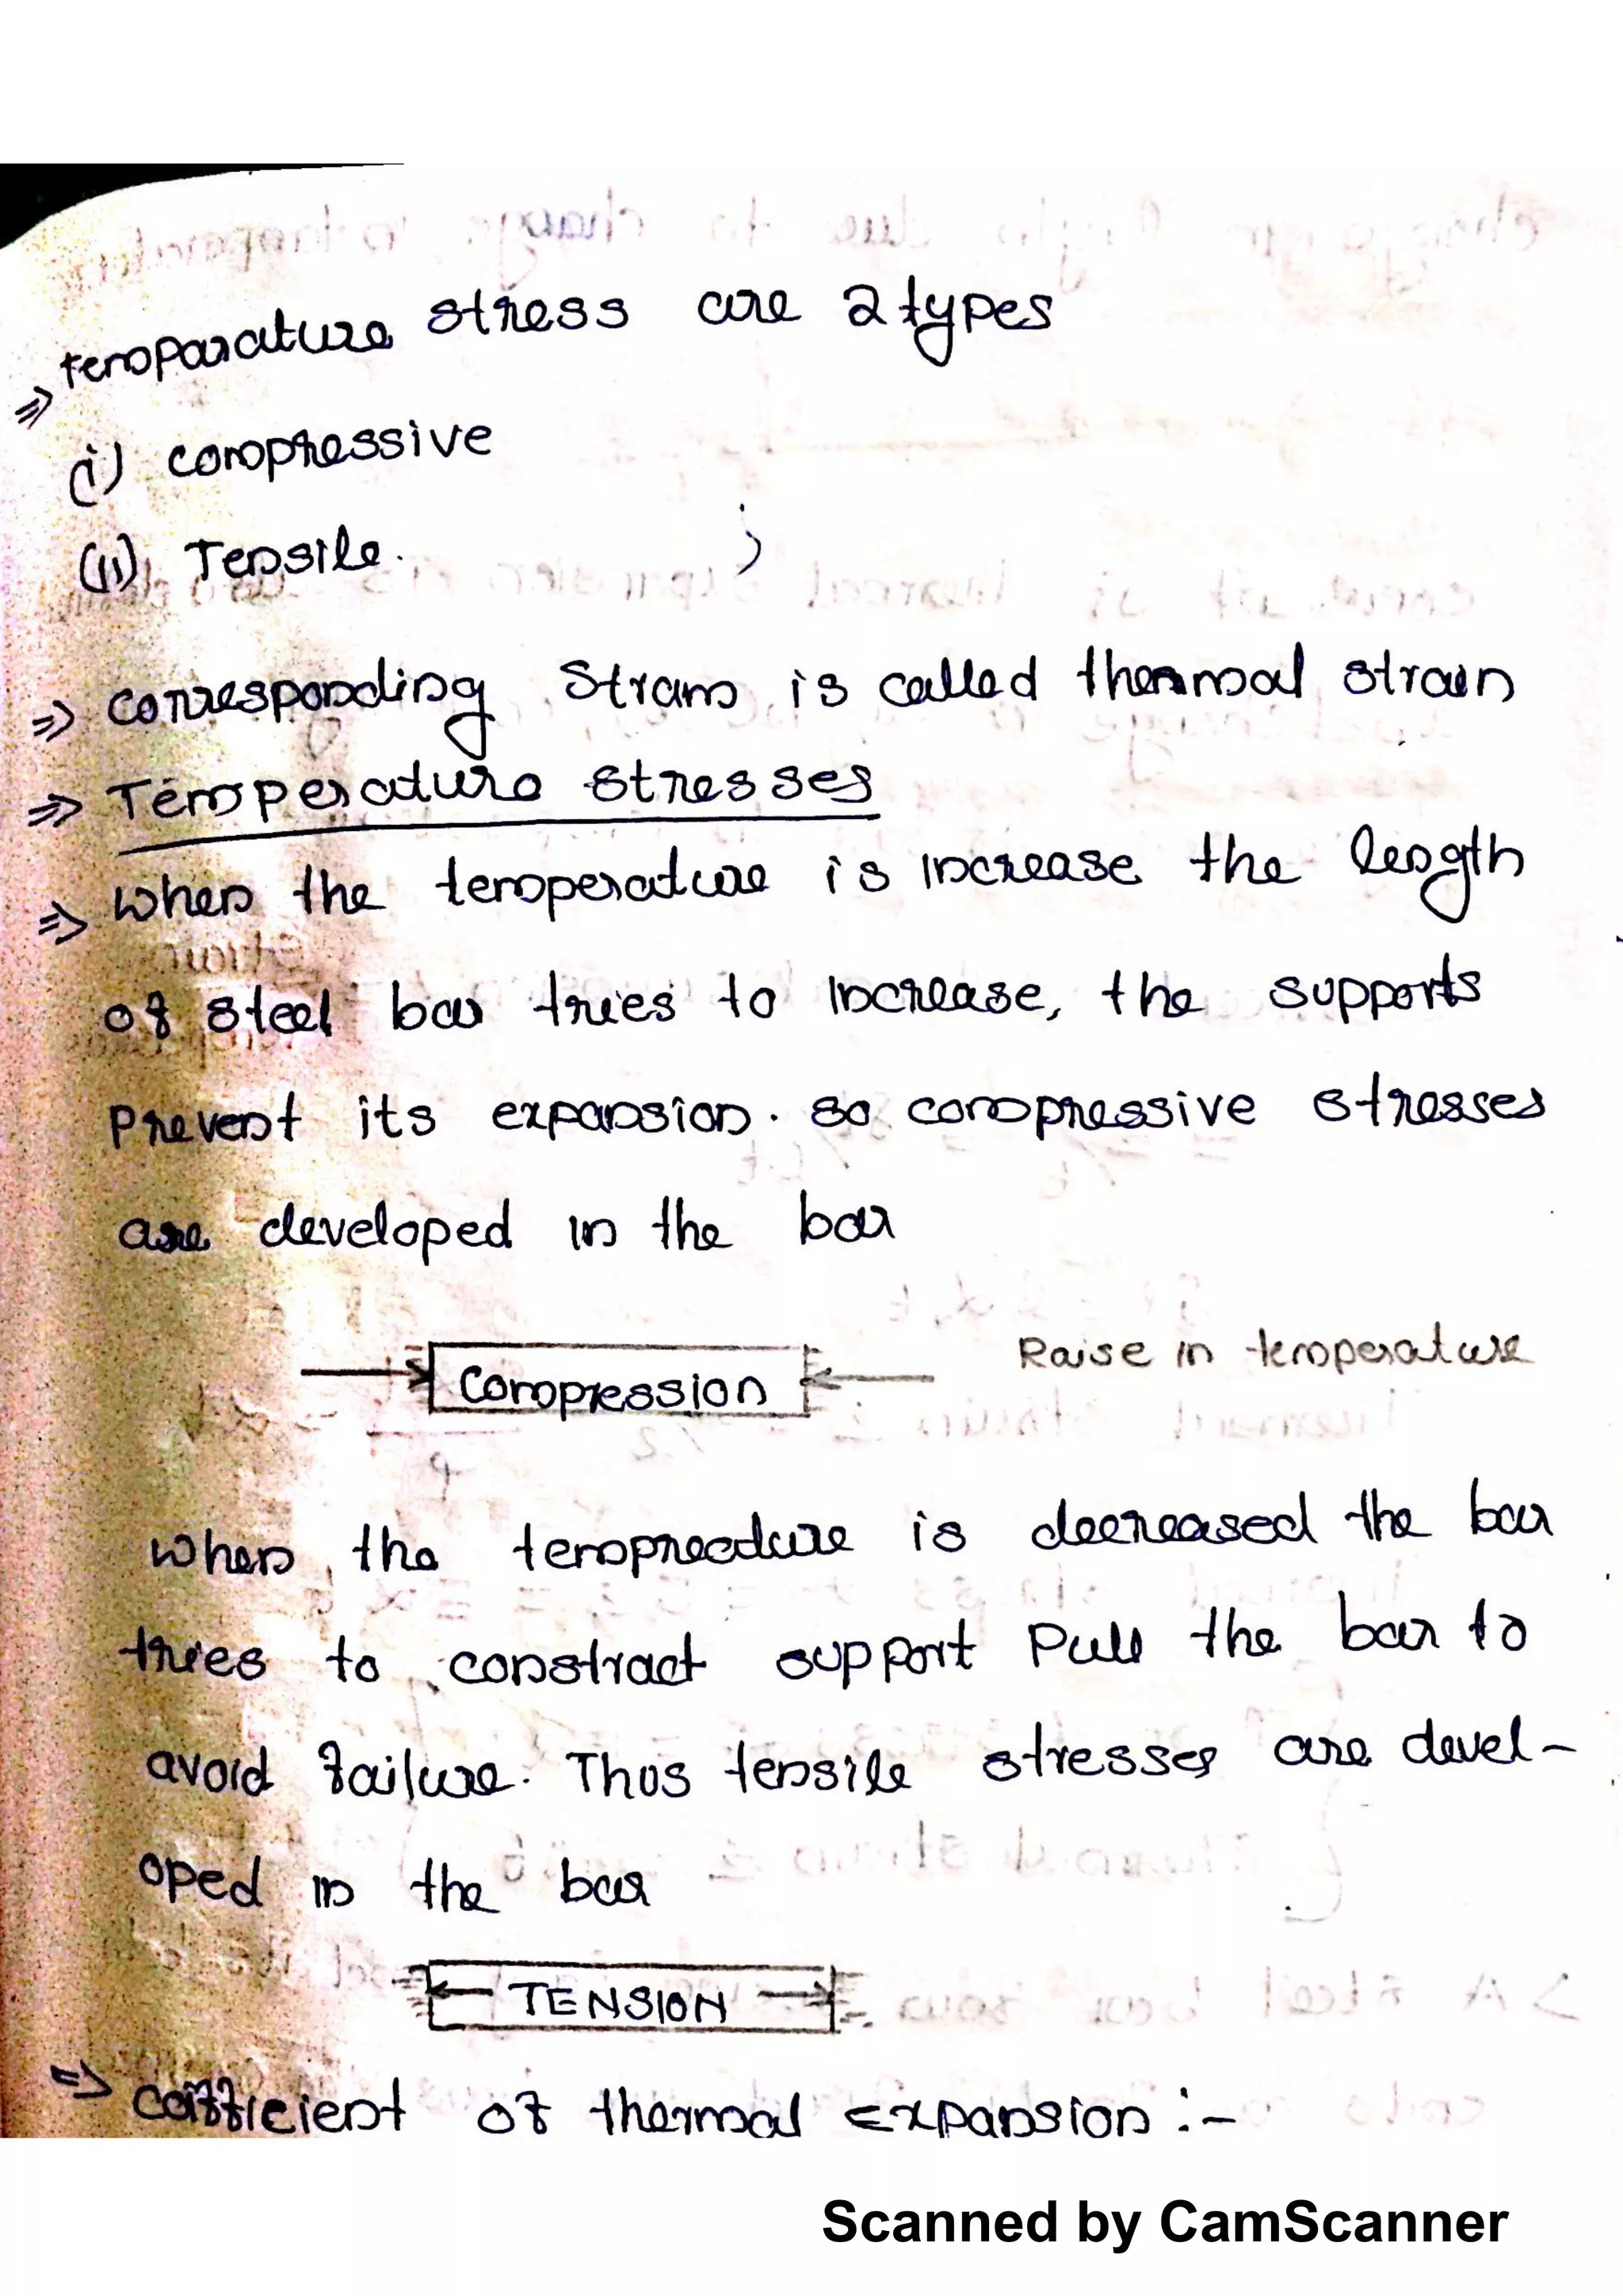 ⇒ temparature stress are 2 types
(i) compressive
(ii) Tensile.
⇒ corresponding strain is called thermal strain
⇒ Temperature stresses
⇒ when the temperature is increase the length
of steel bar tries to increase, the supports
prevent its expansion. so compressive stresses
are developed in the bar
Compression
Raise in temperature
when the tempreature is decreased the bar
tries to constract support pull the bar to
avoid failure. Thus tensile stresses are devel-
oped in the bar
TENSION
⇒ coefficient of thermal Expansion :-
Scanned by CamScanner